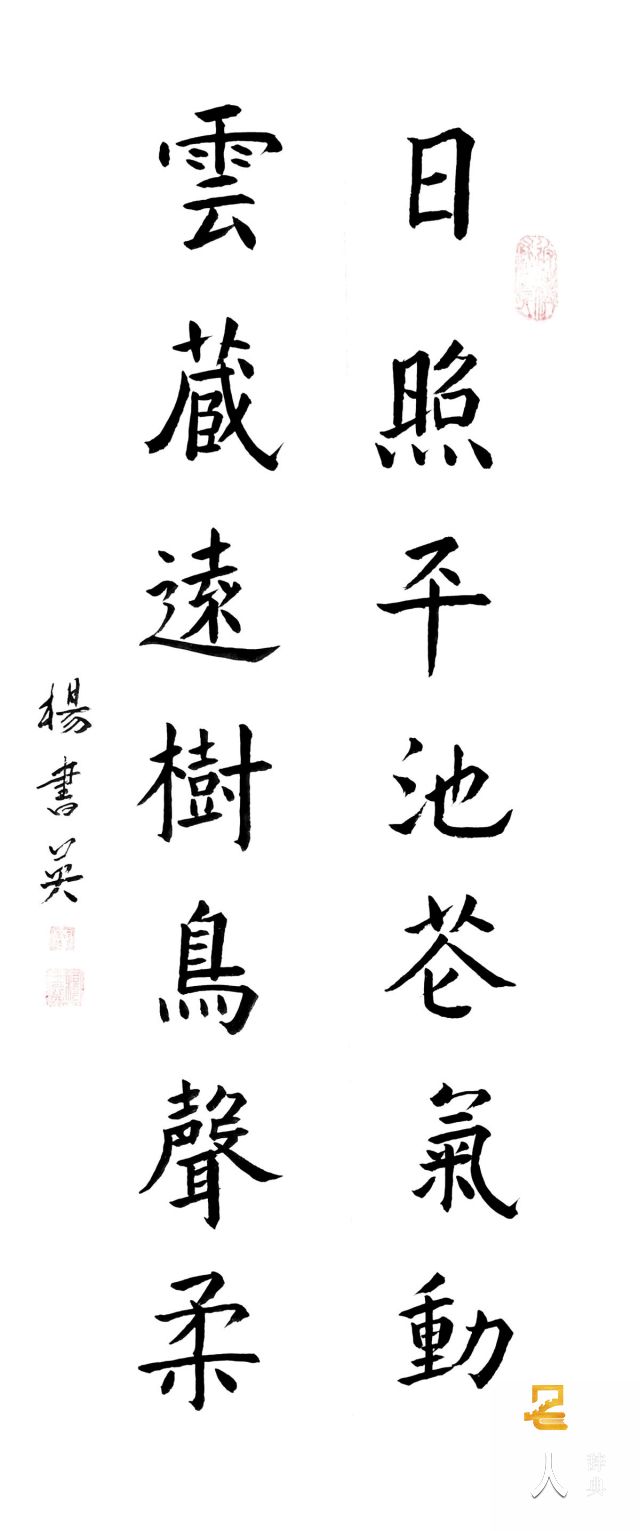 日照平池芲氣動
雲藏遠樹鳥聲柔
楊書英
名人
辞典